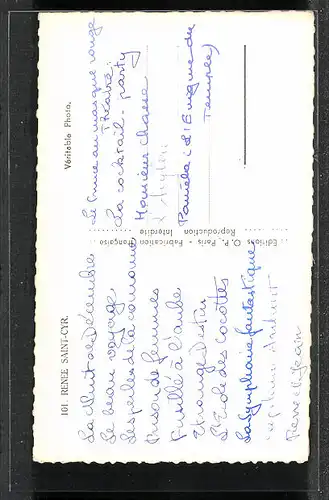 101. RENEE SAINT-CYR.
Véritable Photo.
Editions O. P., Paris - Fabrication Française
Reproduction Interdite
La Nuit de Décembre
Le beau voyage
Les perles de la couronne
Prison de femmes
Fusillé à l'aube
Etrange Destin
L'Ecole des cocottes
La Symphonie fantastique
Renée
Le prince au masque rouge
Théatre:
La cocktail-party
Monsieur chasse
Paméla (L'Enigme du
Temple)